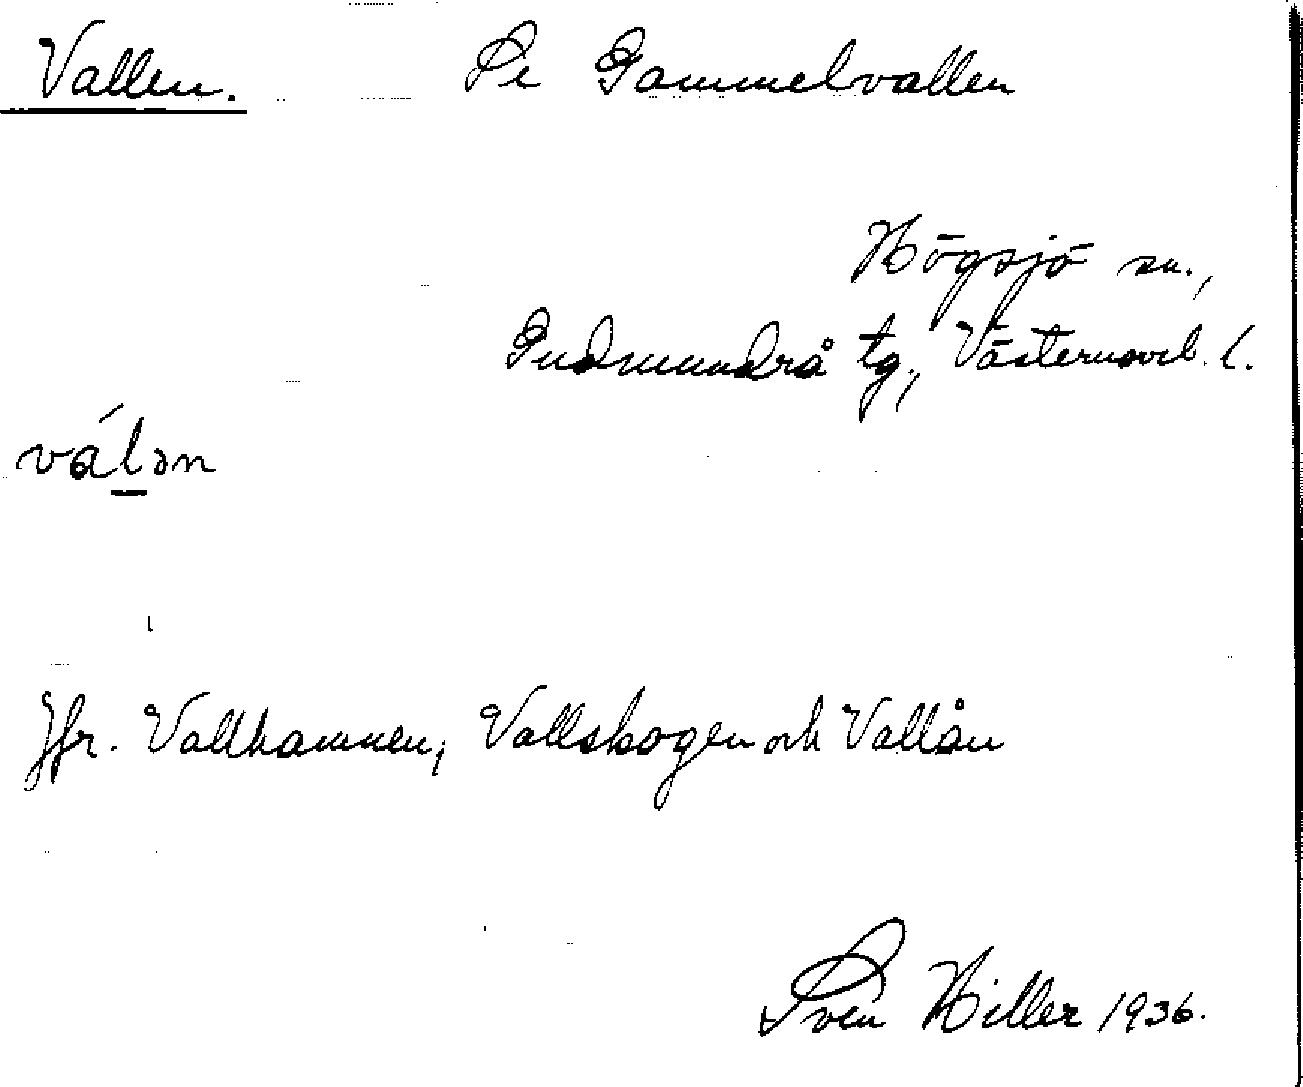 Vallen. Se Gammelvallen
Högsjö sn.,
Gudmundrå tg., Västernorrl. l.
válən
Jfr. Vallhamnen, Vallskogen och Vallån
Sven Hiller 1936.